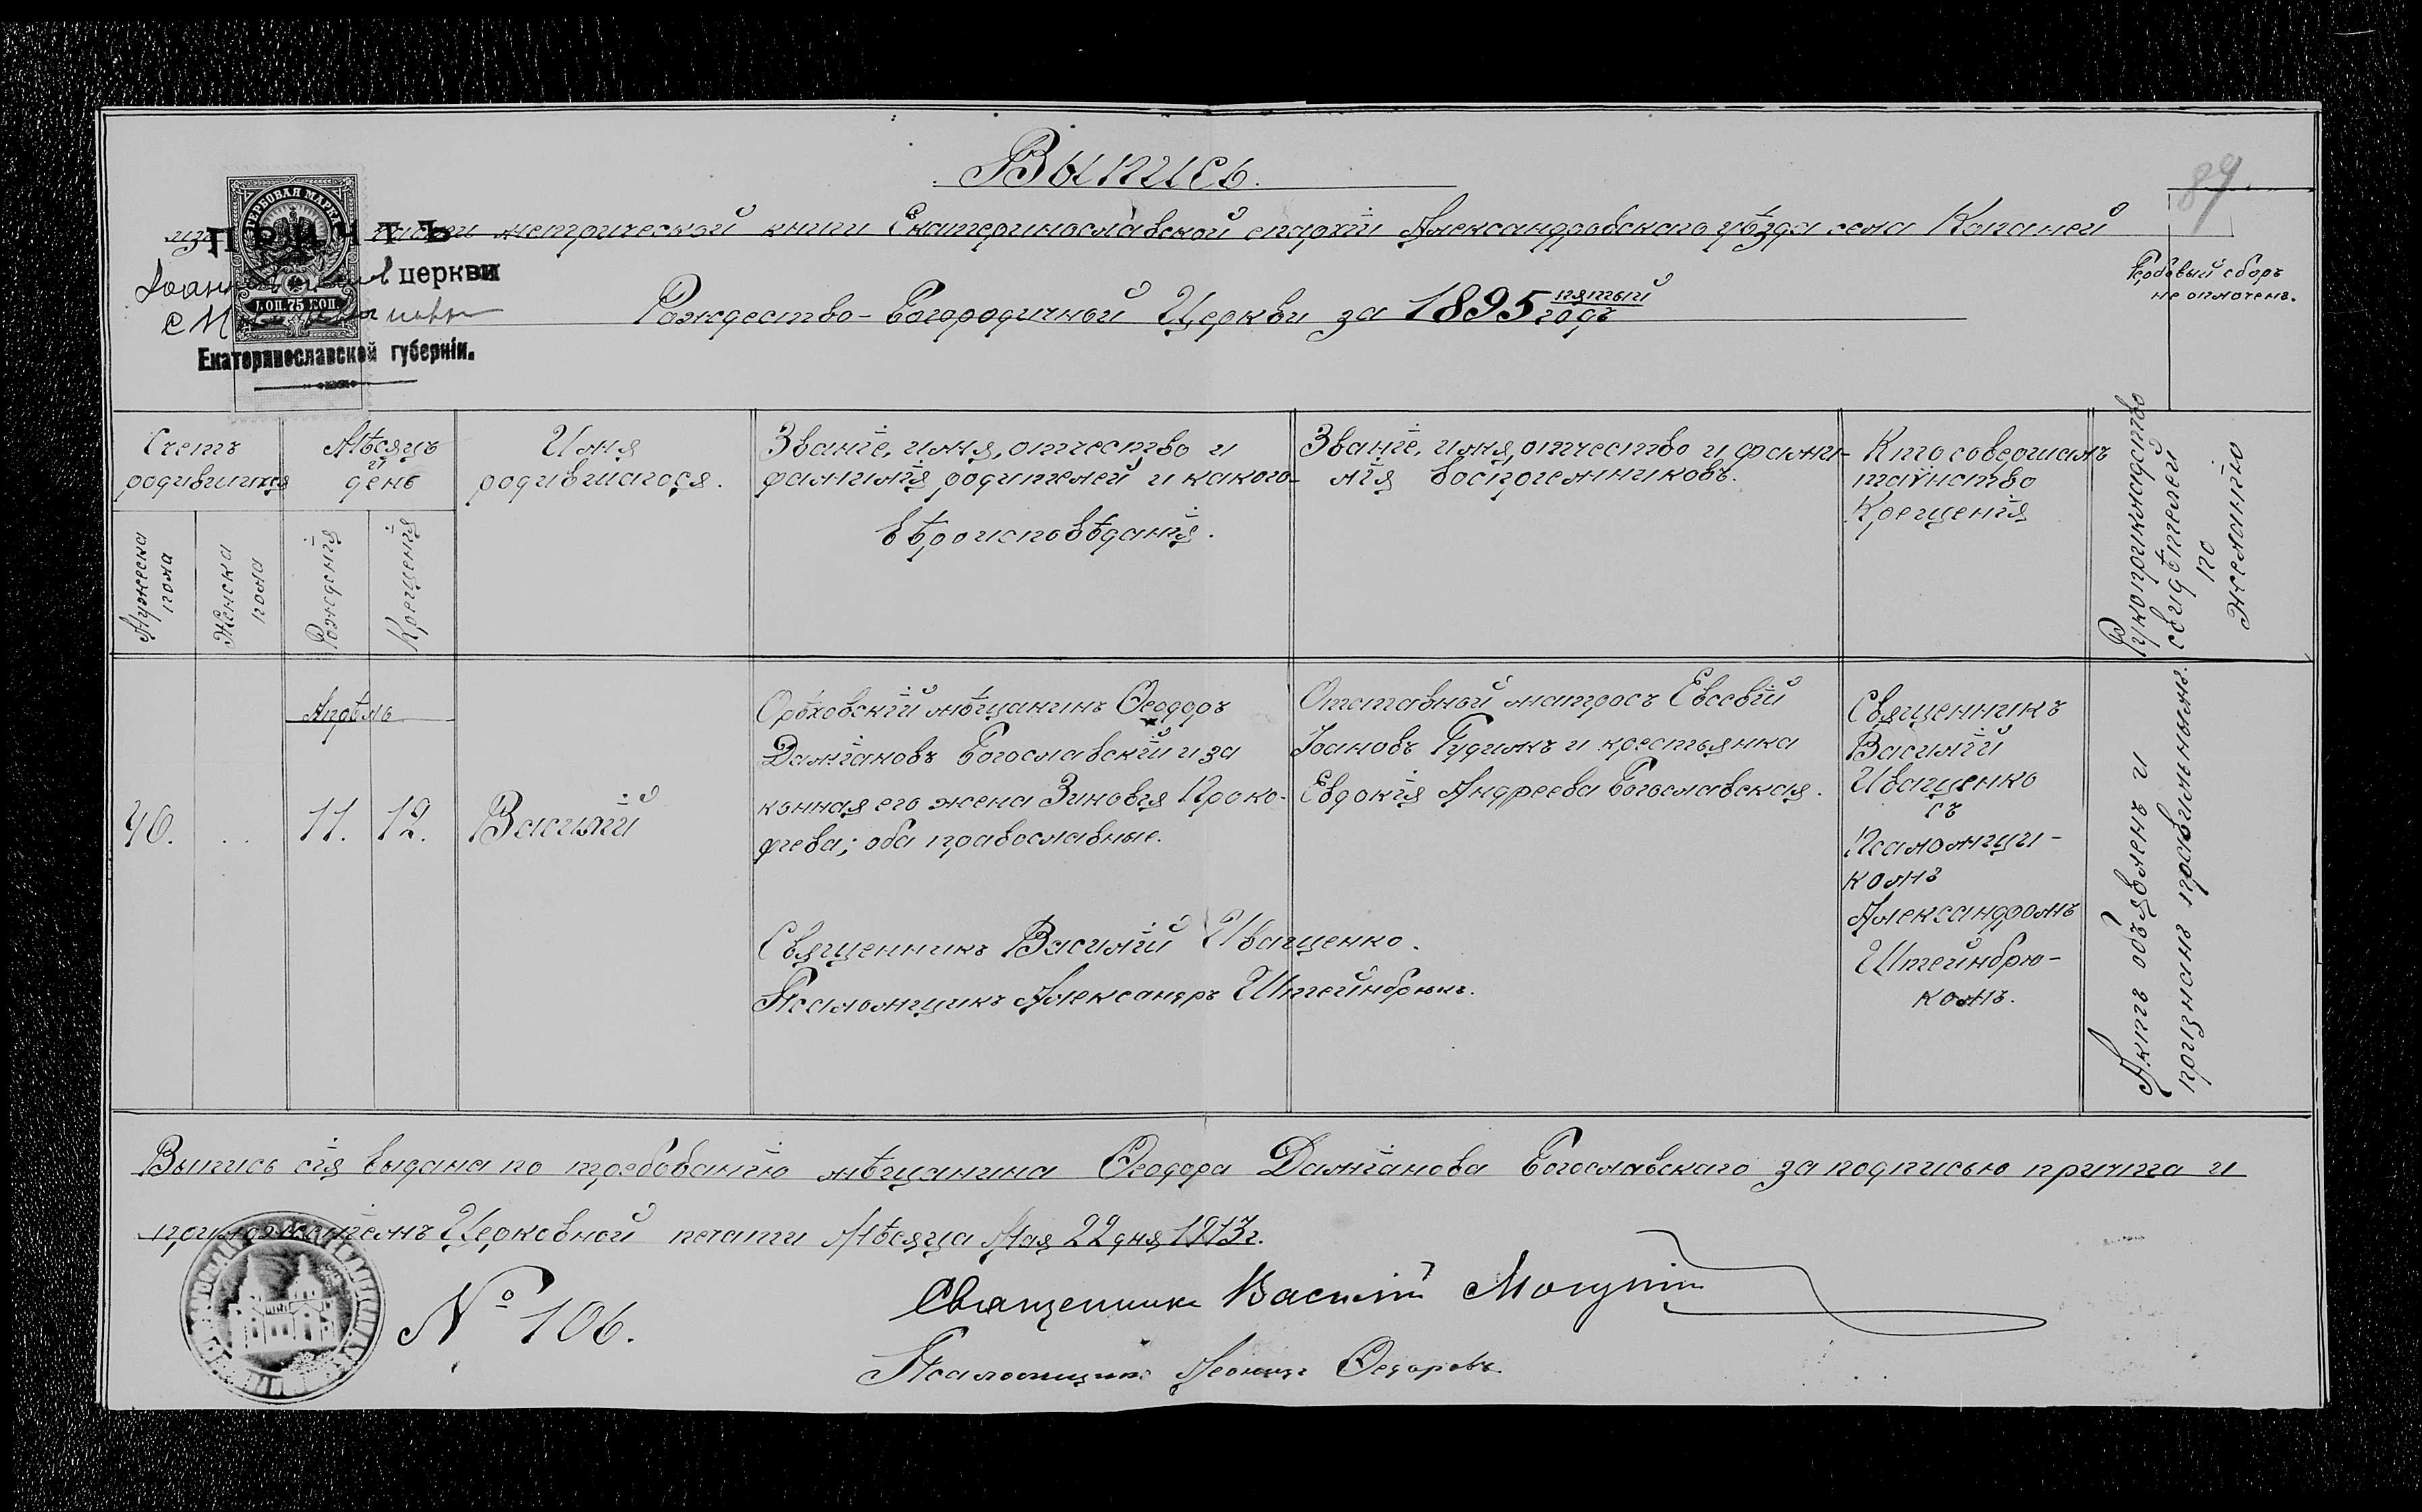 Выпись.
89
изъ части метрической книги Екатеринославской епархіи Александровскаго уѣзда села Копаней
Рождество-Богородичной Церкви за 1895 пятый годъ
Гербовый сборъ
не оплоченъ.
ГЕРБОВАЯ МАРКА
75 КОП.
ПРИЧТЪ
церкви
Екатеринославской губерніи.
Счетъ
родившихся
Мужеска
пола
Женска
пола
Мѣсяцъ
и
день
Рожденія
Крещенія
Имя
родившагося.
Званіе, имя, отчество и
фамилія родителей и какого
вѣроисповѣданія.
Званіе, имя, отчество и фами-
лія воспріемниковъ.
Кто совершалъ
таинство
Крещенія
Рукоприкладство
свидѣтелей
по
желанію
40.
Апрѣль
11.
12.
Василій
Орѣховскій мѣщанинъ Ѳеодоръ
Даміановъ Богославскій и за
конная его жена Зиновія Проко-
фіева; оба православные.
Священникъ Василій Иващенко.
Псаломщикъ Александръ Штейнбрюкъ.
Отставной матросъ Евсевій
Іоановъ Гудимъ и крестьянка
Евдокія Андреева Богославская.
Священникъ
Василій
Иващенко
съ
Псаломщи-
комъ
Александромъ
Штейнбрю-
комъ.
Актъ объявленъ и
признанъ правильнымъ.
Выпись сія выдана по требованію мѣщанина Ѳеодора Даміанова Богославскаго за подписью причта и
приложеніемъ Церковной печати Мѣсяца Мая 22 дня 1913г.
№ 106.
Священникъ Василій
Псаломщикъ Леонидъ Ѳедоровъ